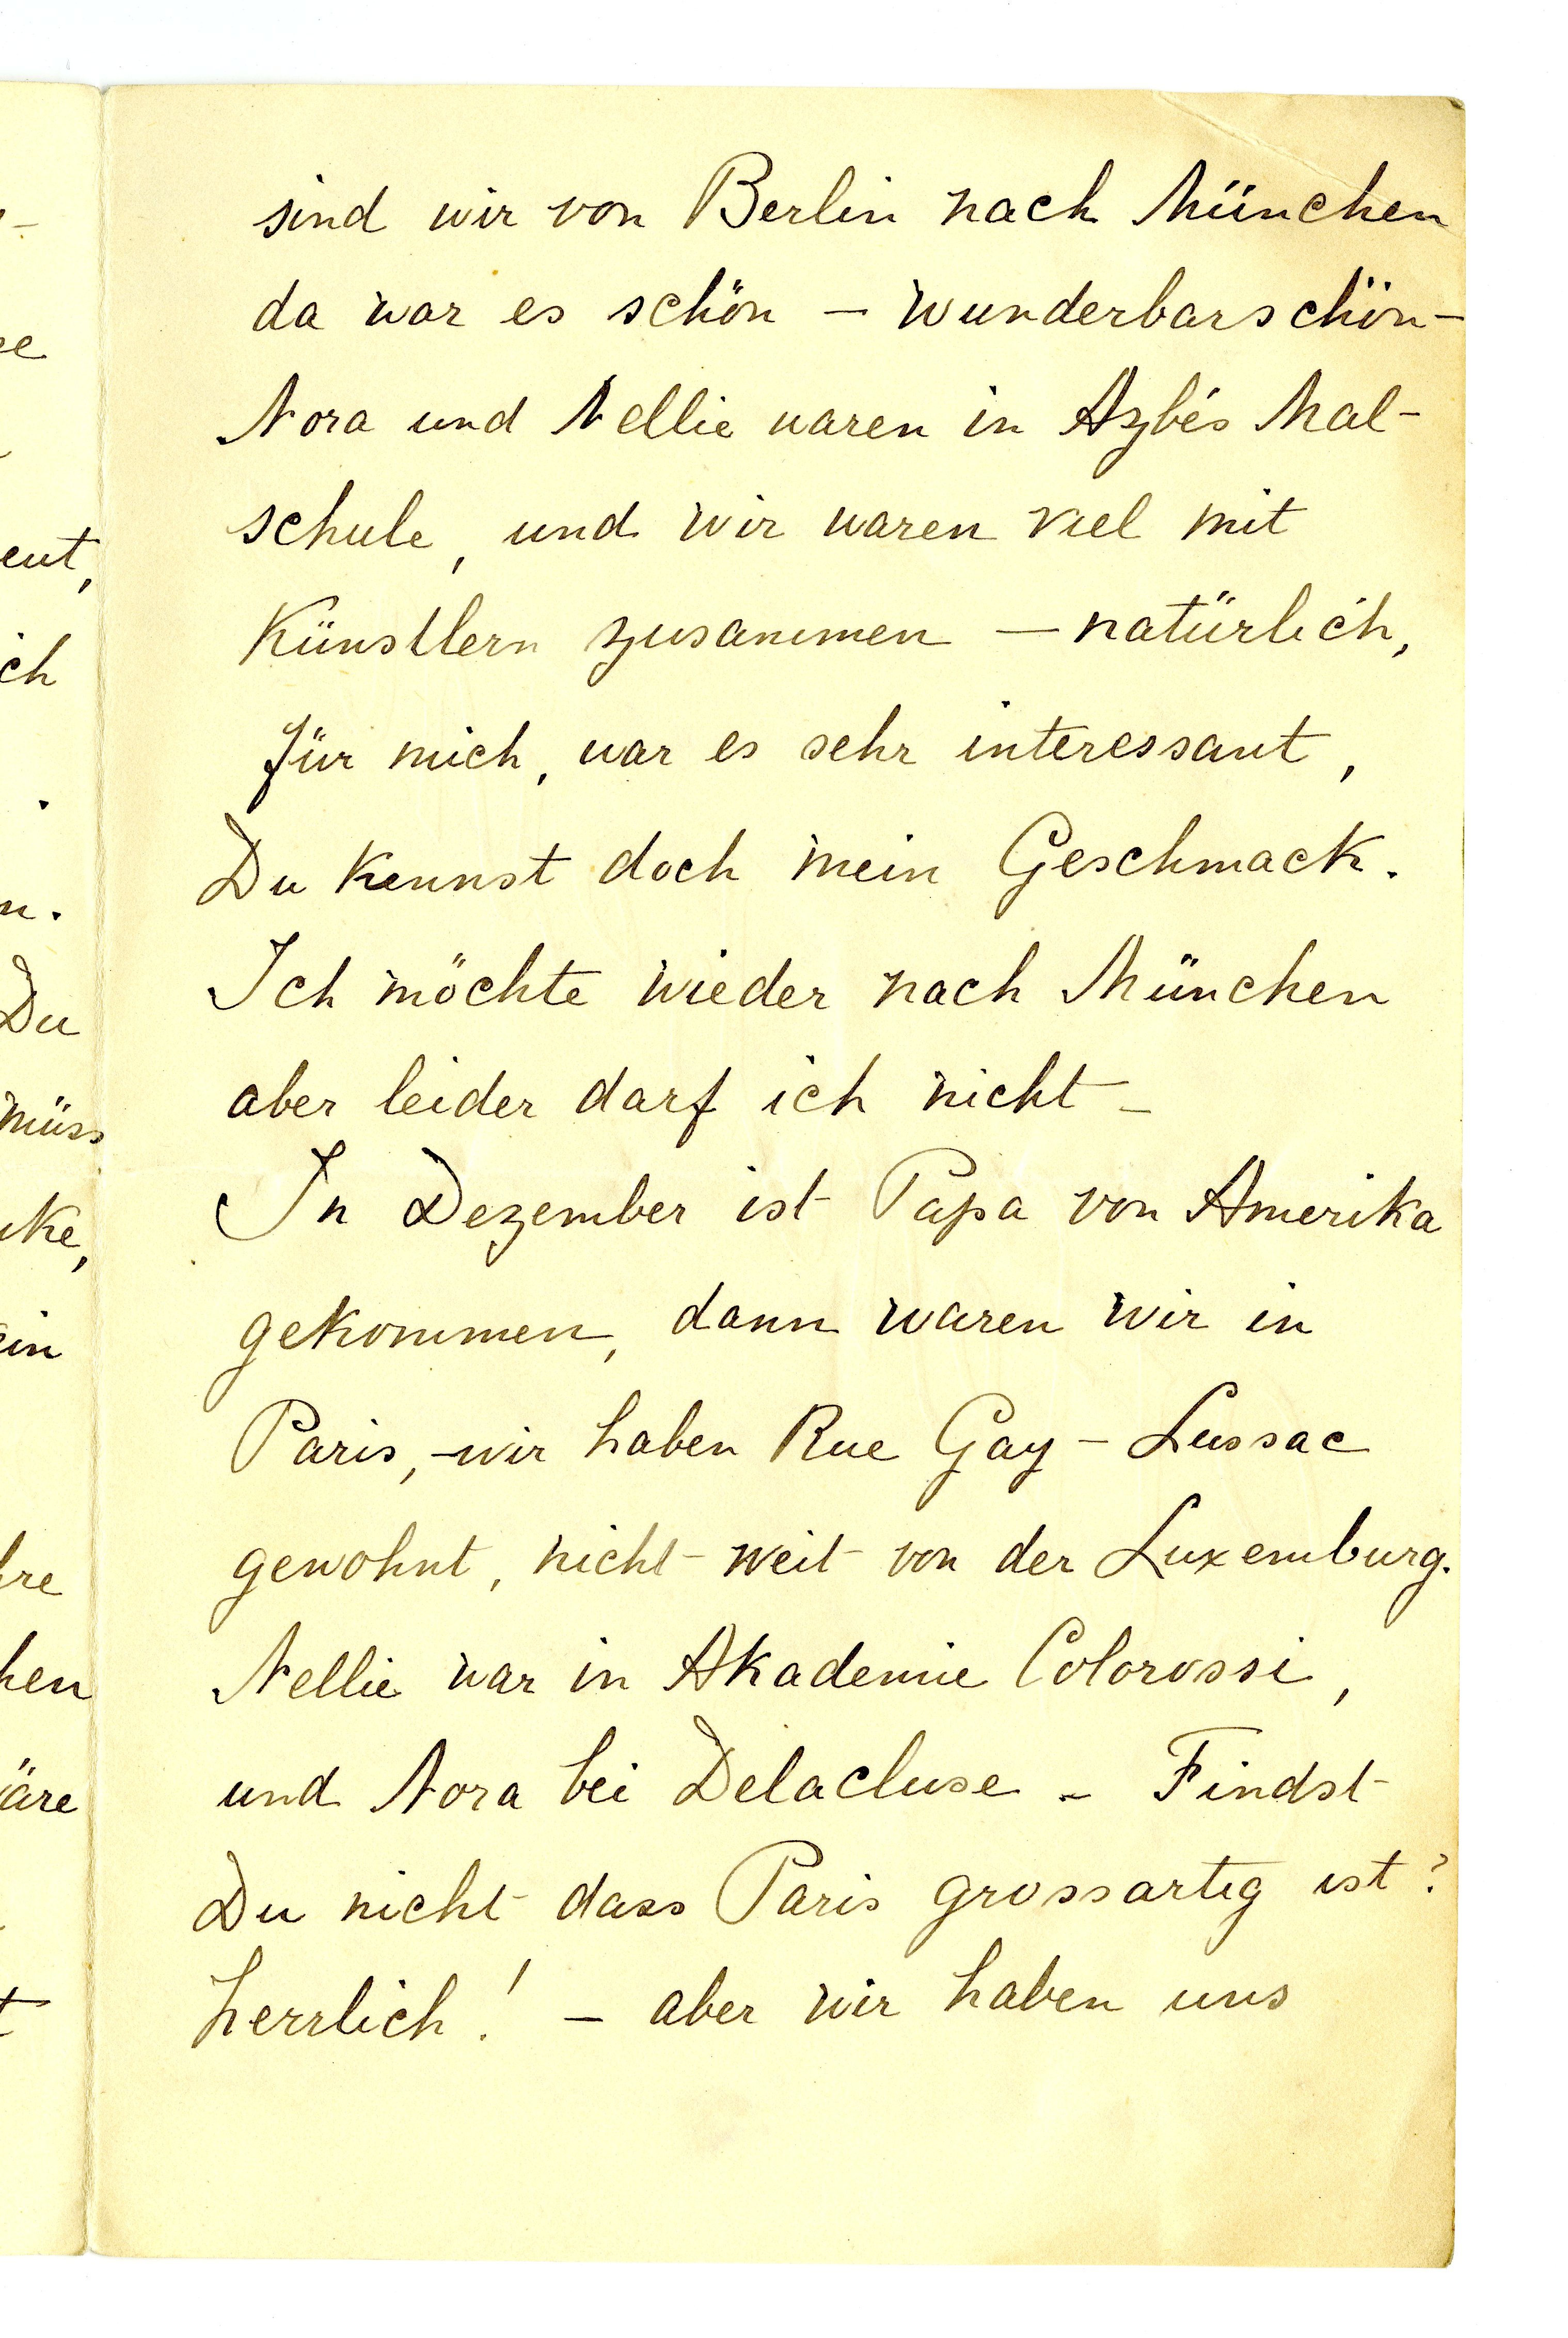 sind wir von Berlin nach München
da war es schön — wunderbar schön —
Nora und Nellie waren in Azbés Mal-
schule, und wir waren viel mit
Künstlern zusammen — natürlich,
für mich, war es sehr interessant,
Du kennst doch mein Geschmack.
Ich möchte wieder nach München
aber leider darf ich nicht —
In Dezember ist Papa von Amerika
gekommen, dann waren wir in
Paris, — wir haben Rue Gay - Lussac
gewohnt, nicht weit von der Luxemburg.
Nellie war in Akademie Colorossi,
und Nora bei Delacluse - Findst
Du nicht dass Paris grossartig ist?
herrlich! — aber wir haben uns